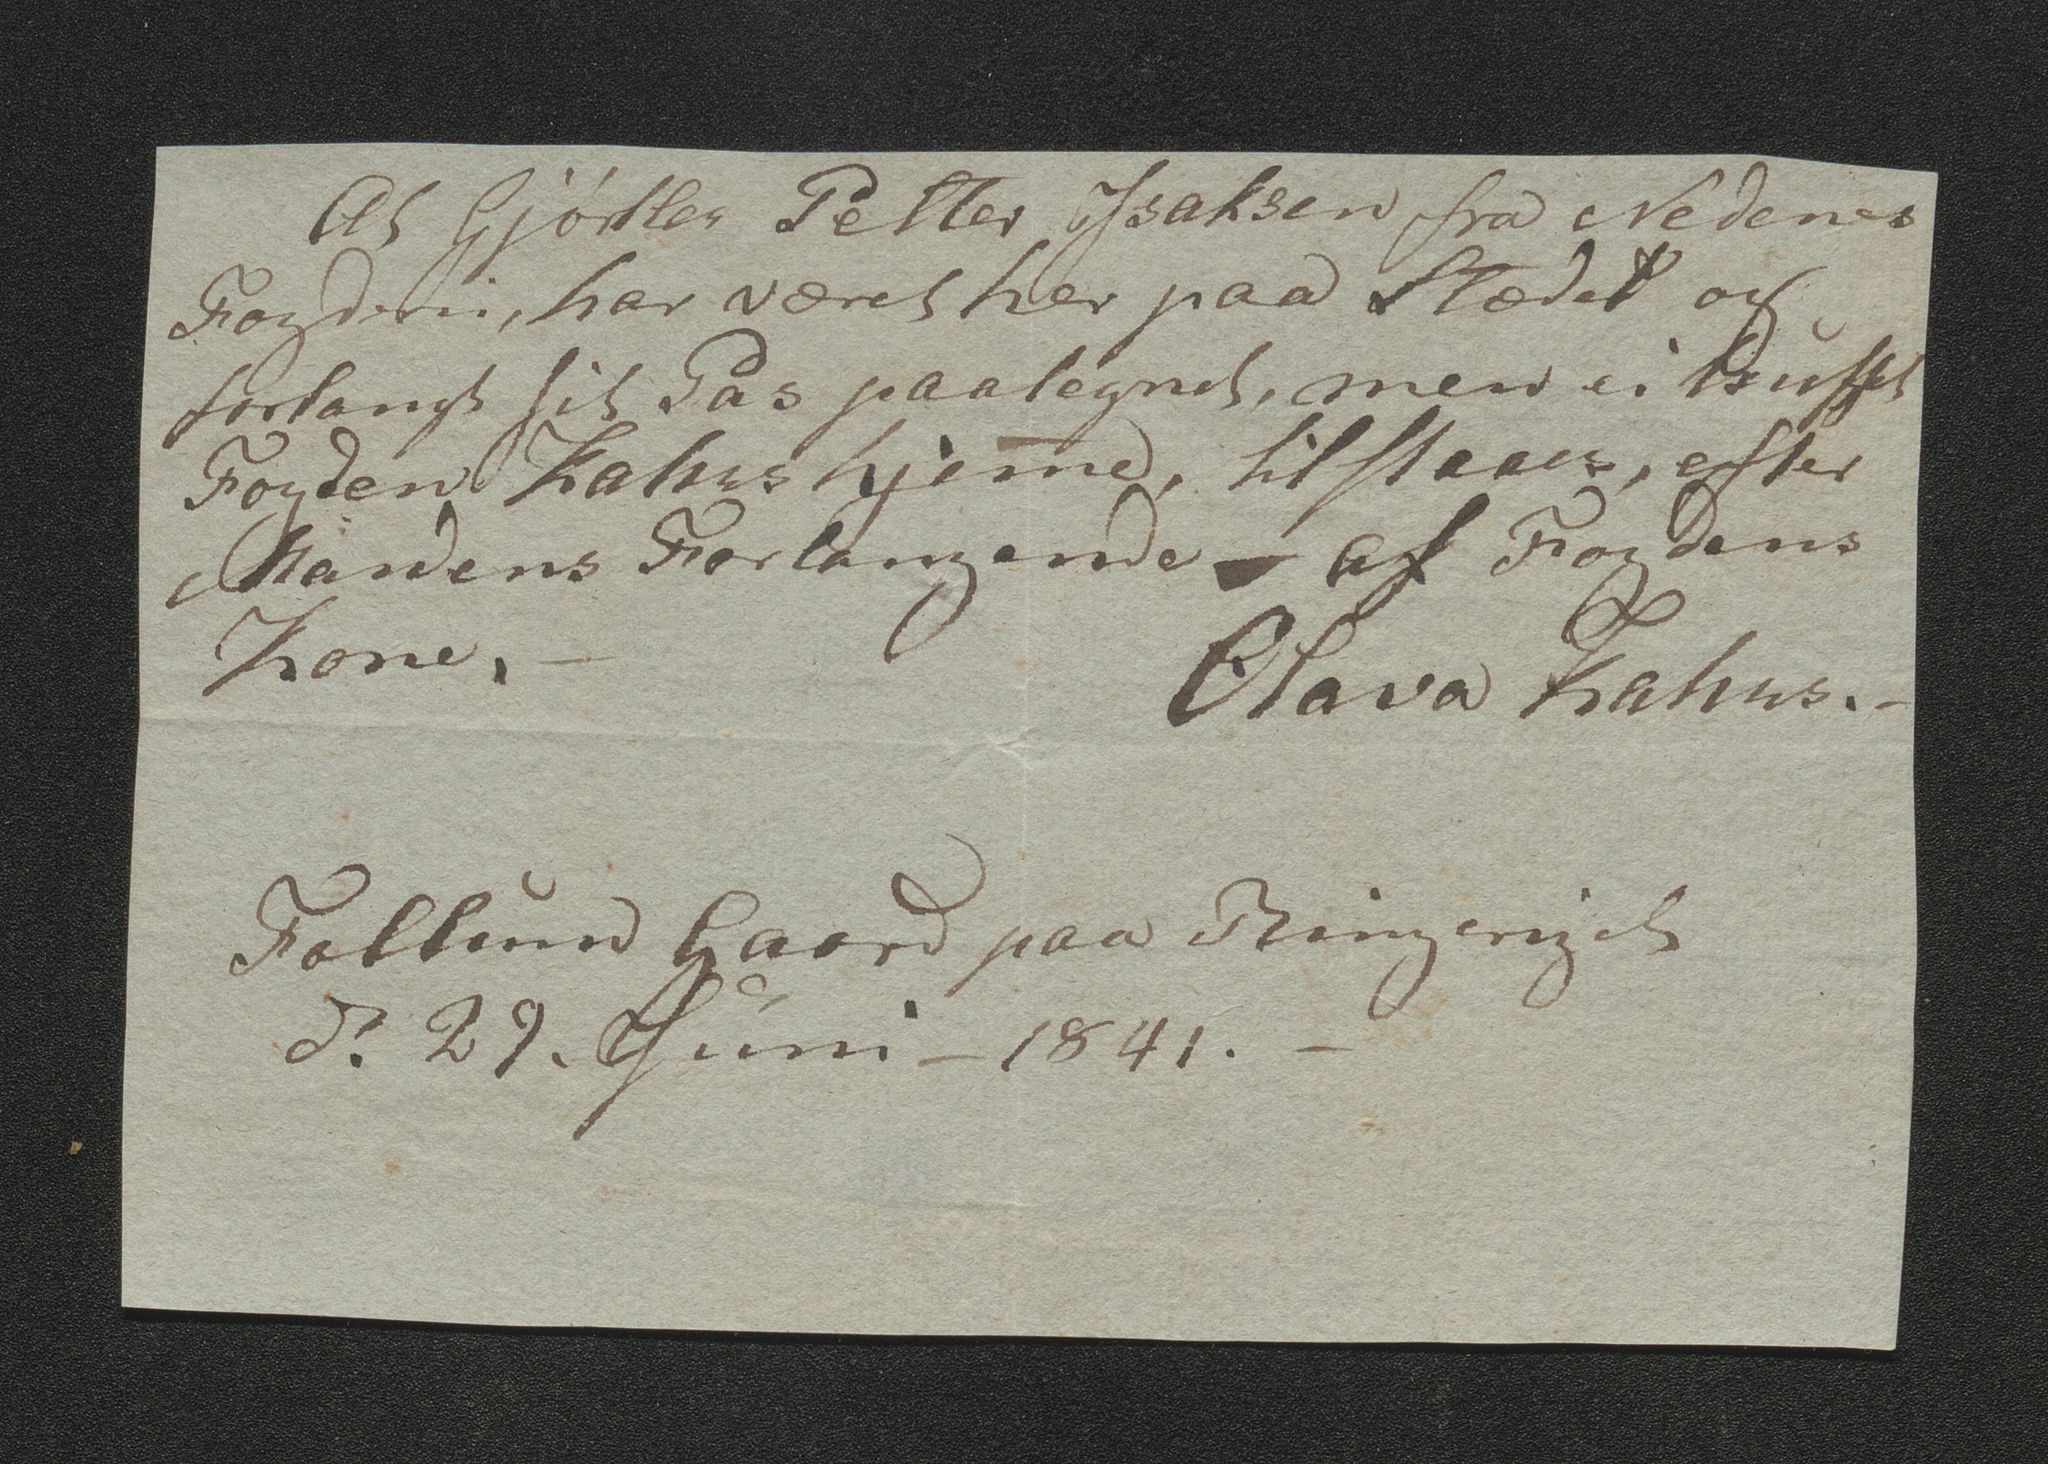 At Gjörtler Petter Isaksen fra Nedenes
Fogderie, har været her paa Stædet og
forlangt sit Pas paategnet, men ei truffet
Fogden Kahrs hjeme, tilstaaes, efter
Mandens Forlangende - af Fogdens
Kone. -
Olava Kahrs. -
Follum Gaard paa Ringeriget
d. 29. Juni - 1841. -